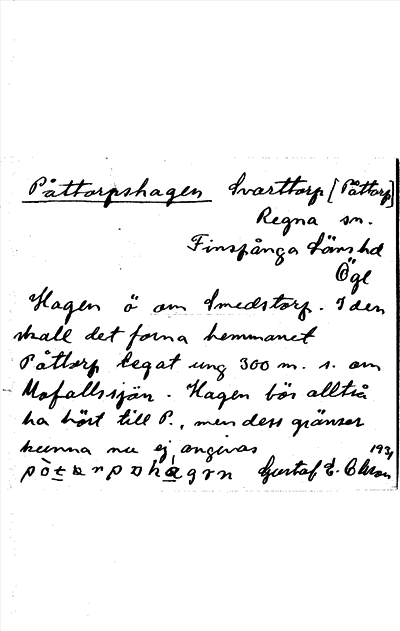 Påttorpshagen Svarttorp [Påttorp]
Regna sn.
Finspånga läns hd
Ögl
Hagen ö om Smedstorp. I den
skall det forna hemmanet
Påttorp legat ung 300 m. s. om
Mofallssjön. Hagen bör alltså
ha hört till P., men dess gränser
kunna nu ej angivas
1931
Gustaf E. Olsson